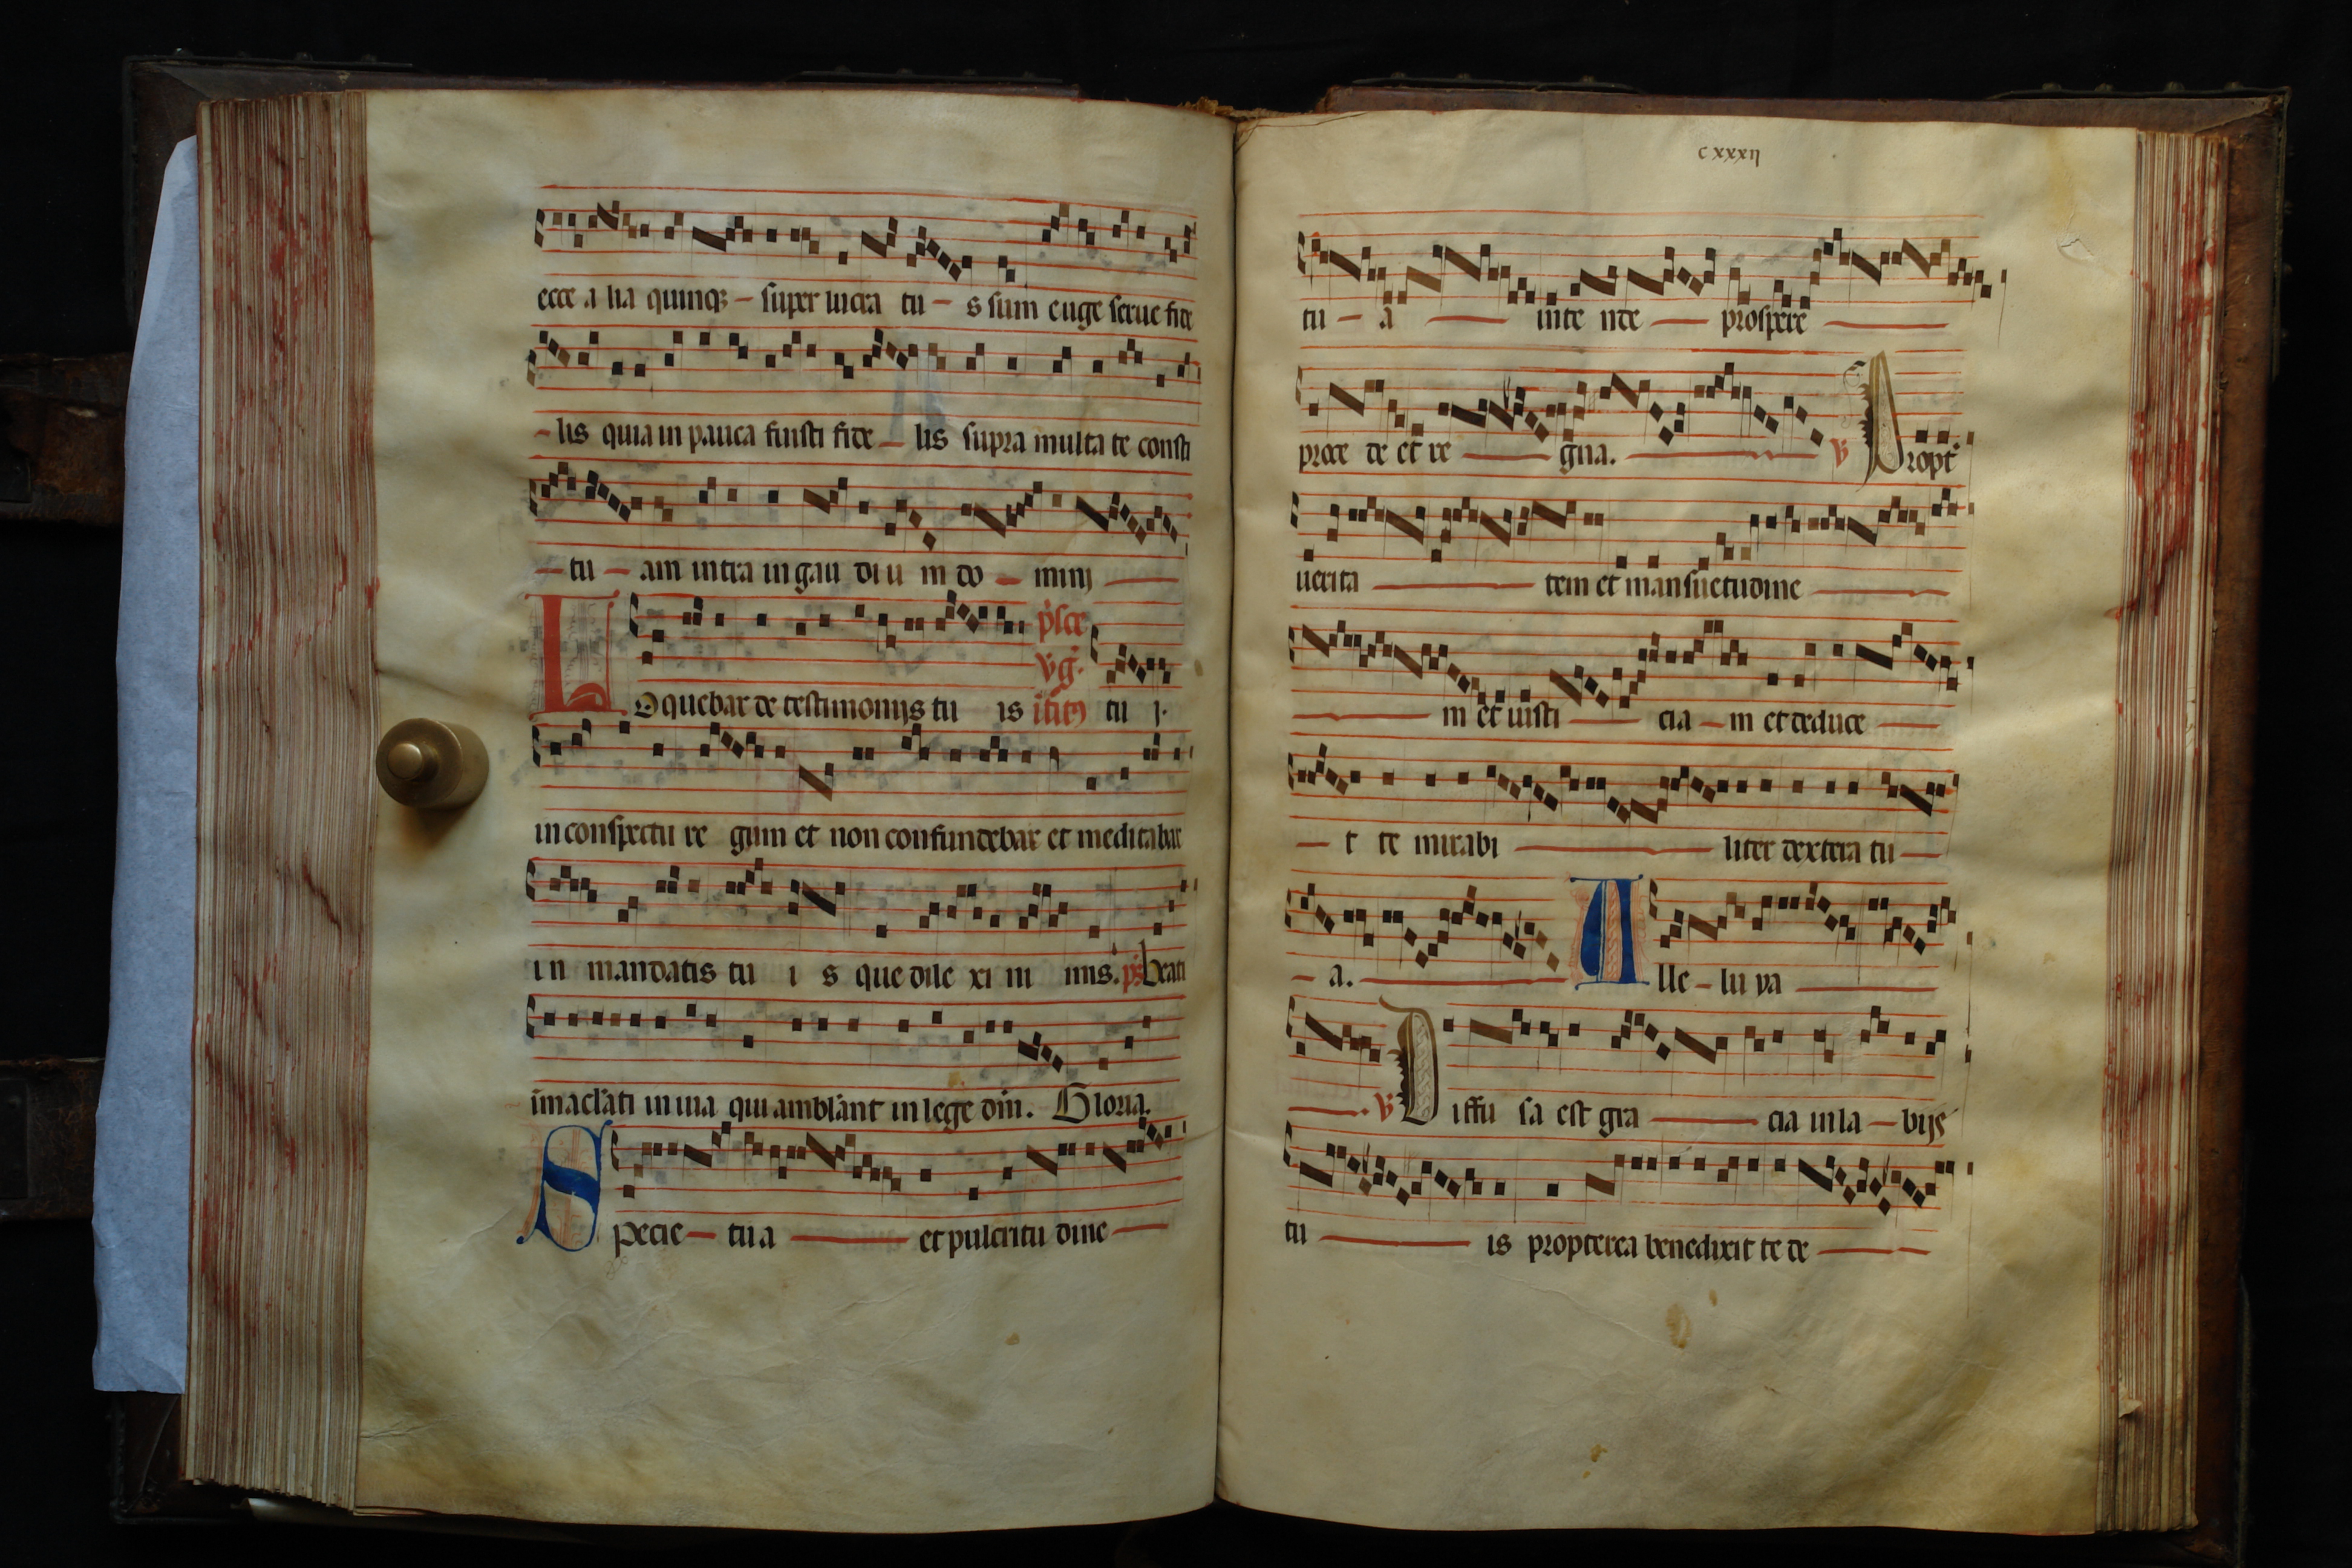 ecce a lia quinq3 – super lucra tu – s sum euge serue fide
– lis quia in pauca fuisti fide – lis supra multa te consti
– tu – am intra in gau diu m do – minj
Loquebar de testimonijs tu is tu j.
in conspectu re gum et non confundebar et meditabar
in mandatis tu i s que dile xi ni mis. ps. beati
īmaclati in uia qui amblant in lege dn̄i. Gloria.
Specie – tua et pulcritu dine
cxxxij
tu – a inte nde prospere
proce de et re gna. v Propt
uerita tem et mansuetudine
m et iusti cia – m et deduce
– t te mirabi liter dextera tu
– a. Alle – lu ya
v Diffu sa est gra cia in la – bijs
tu is propterea benedixit te de